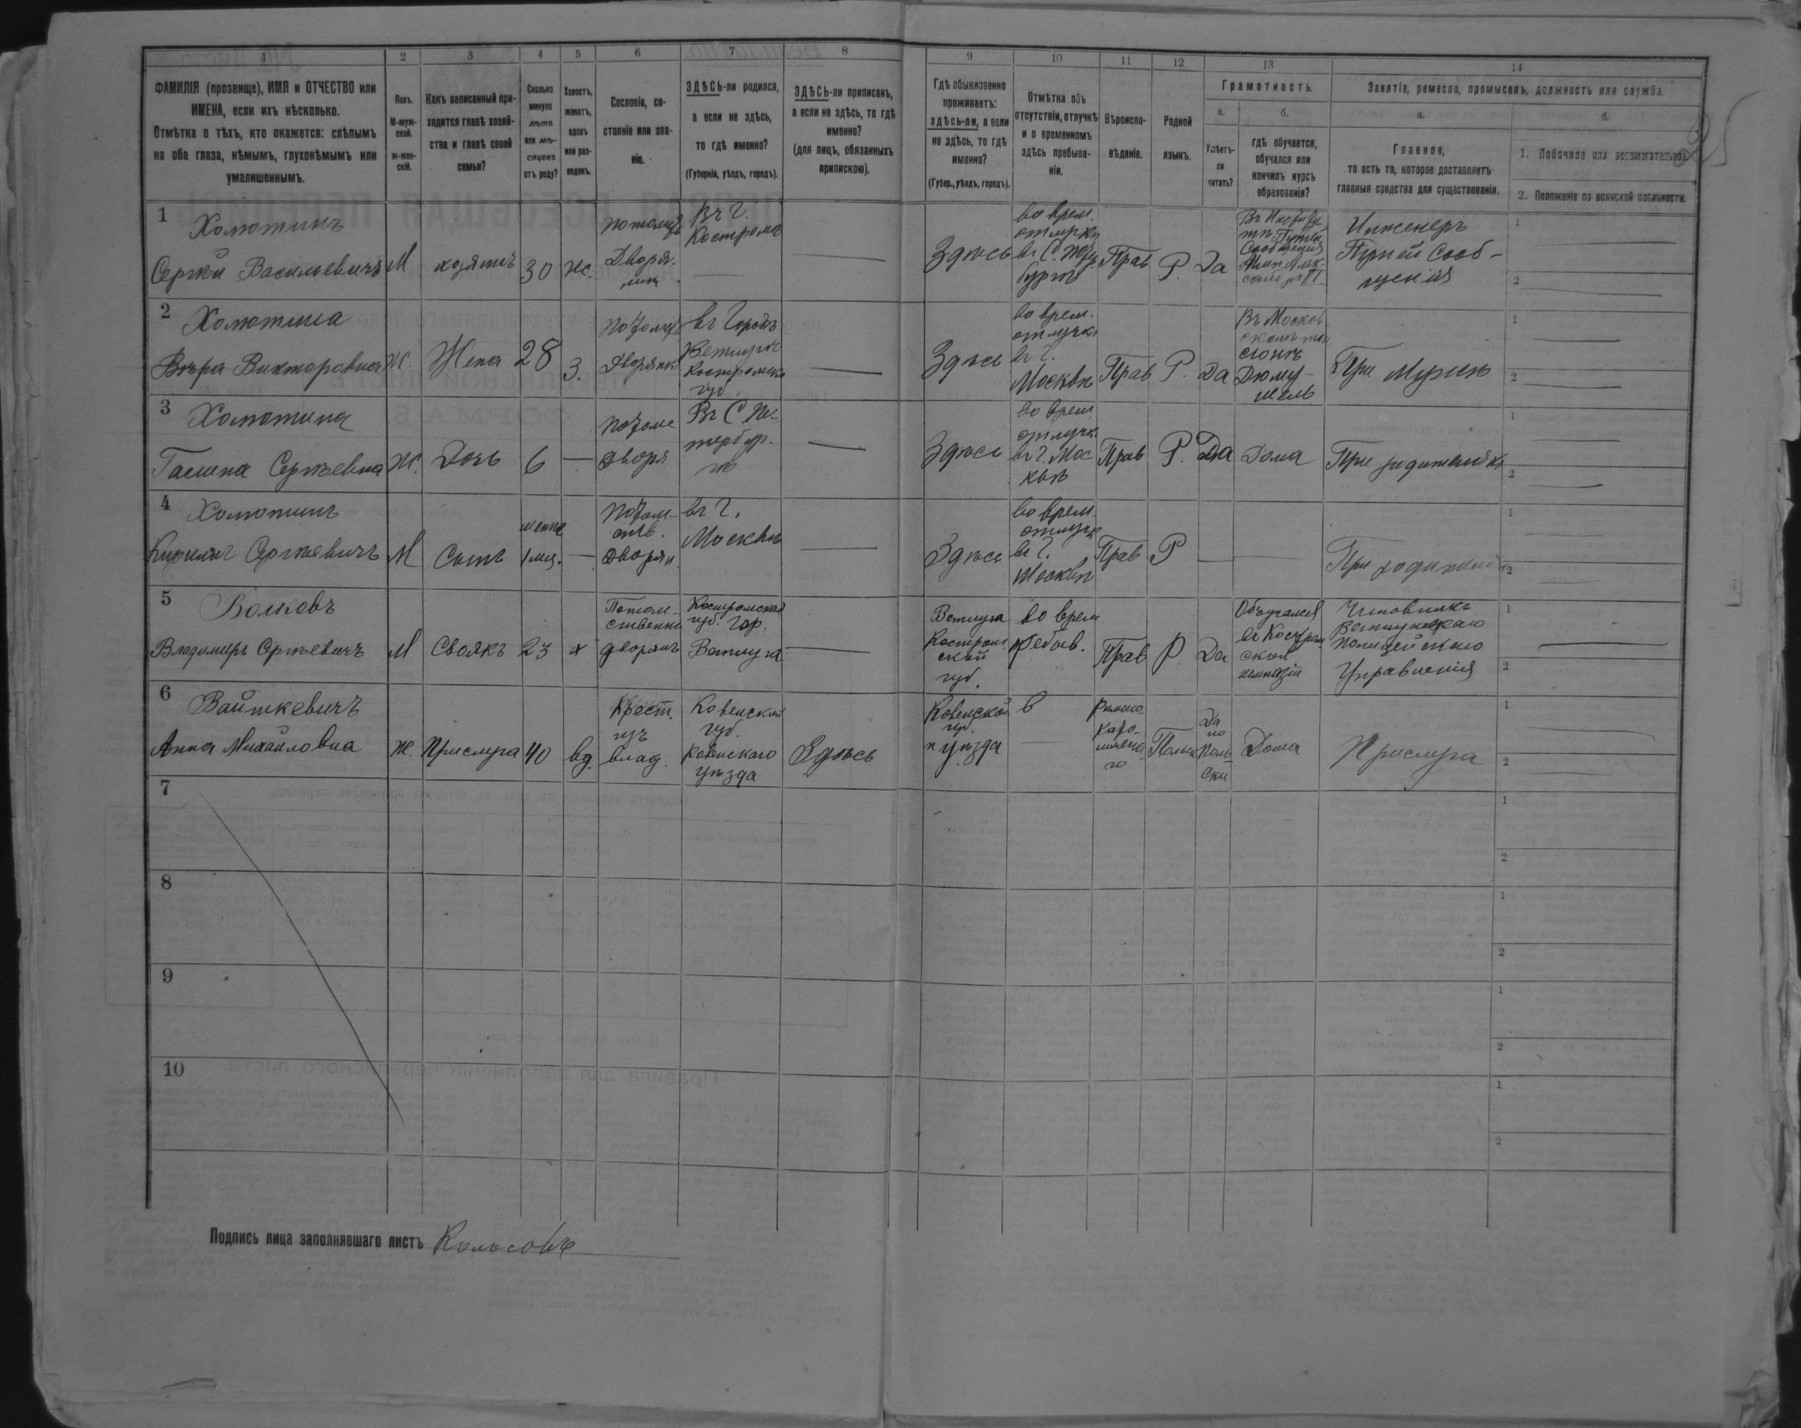 1 2 3 4 5 6 7 8 9 10 11 12 13 14
ФАМИЛІЯ (прозвище), ИМЯ и ОТЧЕСТВО или
ИМЕНА, если ихъ нѣсколько.
Отмѣтка о тѣхъ, кто окажется: слѣпымъ
на оба глаза, нѣмымъ, глухонѣмымъ или
умалишеннымъ.
Полъ.
М-муж-
ской.
Ж-жен-
скій.
Какъ записанный при-
ходится главѣ хозяй-
ства и главѣ своей
семьи?
Сколько
минуло
лѣтъ
или мѣ-
сяцевъ
отъ роду?
Холостъ,
женатъ,
вдовъ
или раз-
веденъ.
Сословіе, со-
стояніе или зва-
ніе.
ЗДѢСЬ-ли родился,
а если не здѣсь,
то гдѣ именно?
(Губернія, уѣздъ, городъ).
ЗДѢСЬ-ли приписанъ,
а если не здѣсь, то гдѣ
именно?
(для лицъ, обязанныхъ
припискою).
Гдѣ обыкновенно
проживаетъ:
здѣсь-ли, а если
не здѣсь, то гдѣ
именно?
(Губер., уѣздъ, городъ).
Отмѣтка объ
отсутствіи, отлучкѣ
и о временномъ
здѣсь пребыва-
ніи.
Вѣроиспо-
вѣданіе.
Родной
языкъ.
Грамотность.
а.
Умѣетъ-
ли
читать?
б.
гдѣ обучается,
обучался или
кончилъ курсъ
образованія?
Занятіе, ремесло, промыселъ, должность или служба.
а.
Главное,
то есть то, которое доставляетъ
главныя средства для существованія.
б.
1. Побочное или вспомогательное.
2. Положеніе по воинской повинности.
1
Сергѣй Васильевичъ М хозяинъ 30 Ж.
Дворя-
нинъ
Въ г.
Костромѣ
Здѣсь
во врем.
отлучкѣ
Прав Р. Да
Инженеръ
Путей Сооб-
щенія
2
Вѣра Викторовна Ж. Жена 28 З.
Дворянк
въ городѣ
Ветлугѣ
Костромско
губ.
Здѣсь
во врем.
отлучкѣ
въ г.
Москвѣ
Прав Р. Да
Въ Москов
При Мужѣ
3
Сергѣевна Ж. Дочь 6 —
дворя
Въ С Пе-
тербур-
гѣ
Здѣсь
во врем
отлучк.
въ г. Мос
квѣ
Прав Р. Да Дома При родителяхъ
4
Сергѣевичъ М Сынъ
менѣе
1 мѣс. —
дворян.
въ г.
Москвѣ
Здѣсь
во врем.
отлучк
въ г.
Москвѣ
Прав Р —
При родителя
5
Волковъ
Владимиръ Сергѣевичъ М Своякъ 23 х
Потом-
ственн
дворянъ
Костромская
губ. гор.
Ветлуга
Ветлуга
Костром
ской
губ.
во врем
пребыв.
Прав Р. Да
Обучался
въ Костром
ской
гимназіи
Чиновникъ
Ветлужскаго
Полицейскаго
Управленія
6
Войткевичъ
Анна Михайловна Ж. Прислуга 40 вд.
Крест.
изъ
влад.
Ковенской
губ.
Ковенскаго
уѣзда
Здѣсь
Ковенской
губ.
уѣзда
в
—
Римско
като-
Да
по
Поль-
ски
Дома Прислуга
7
8
9
10
Подпись лица заполнявшаго листъ Колосовъ